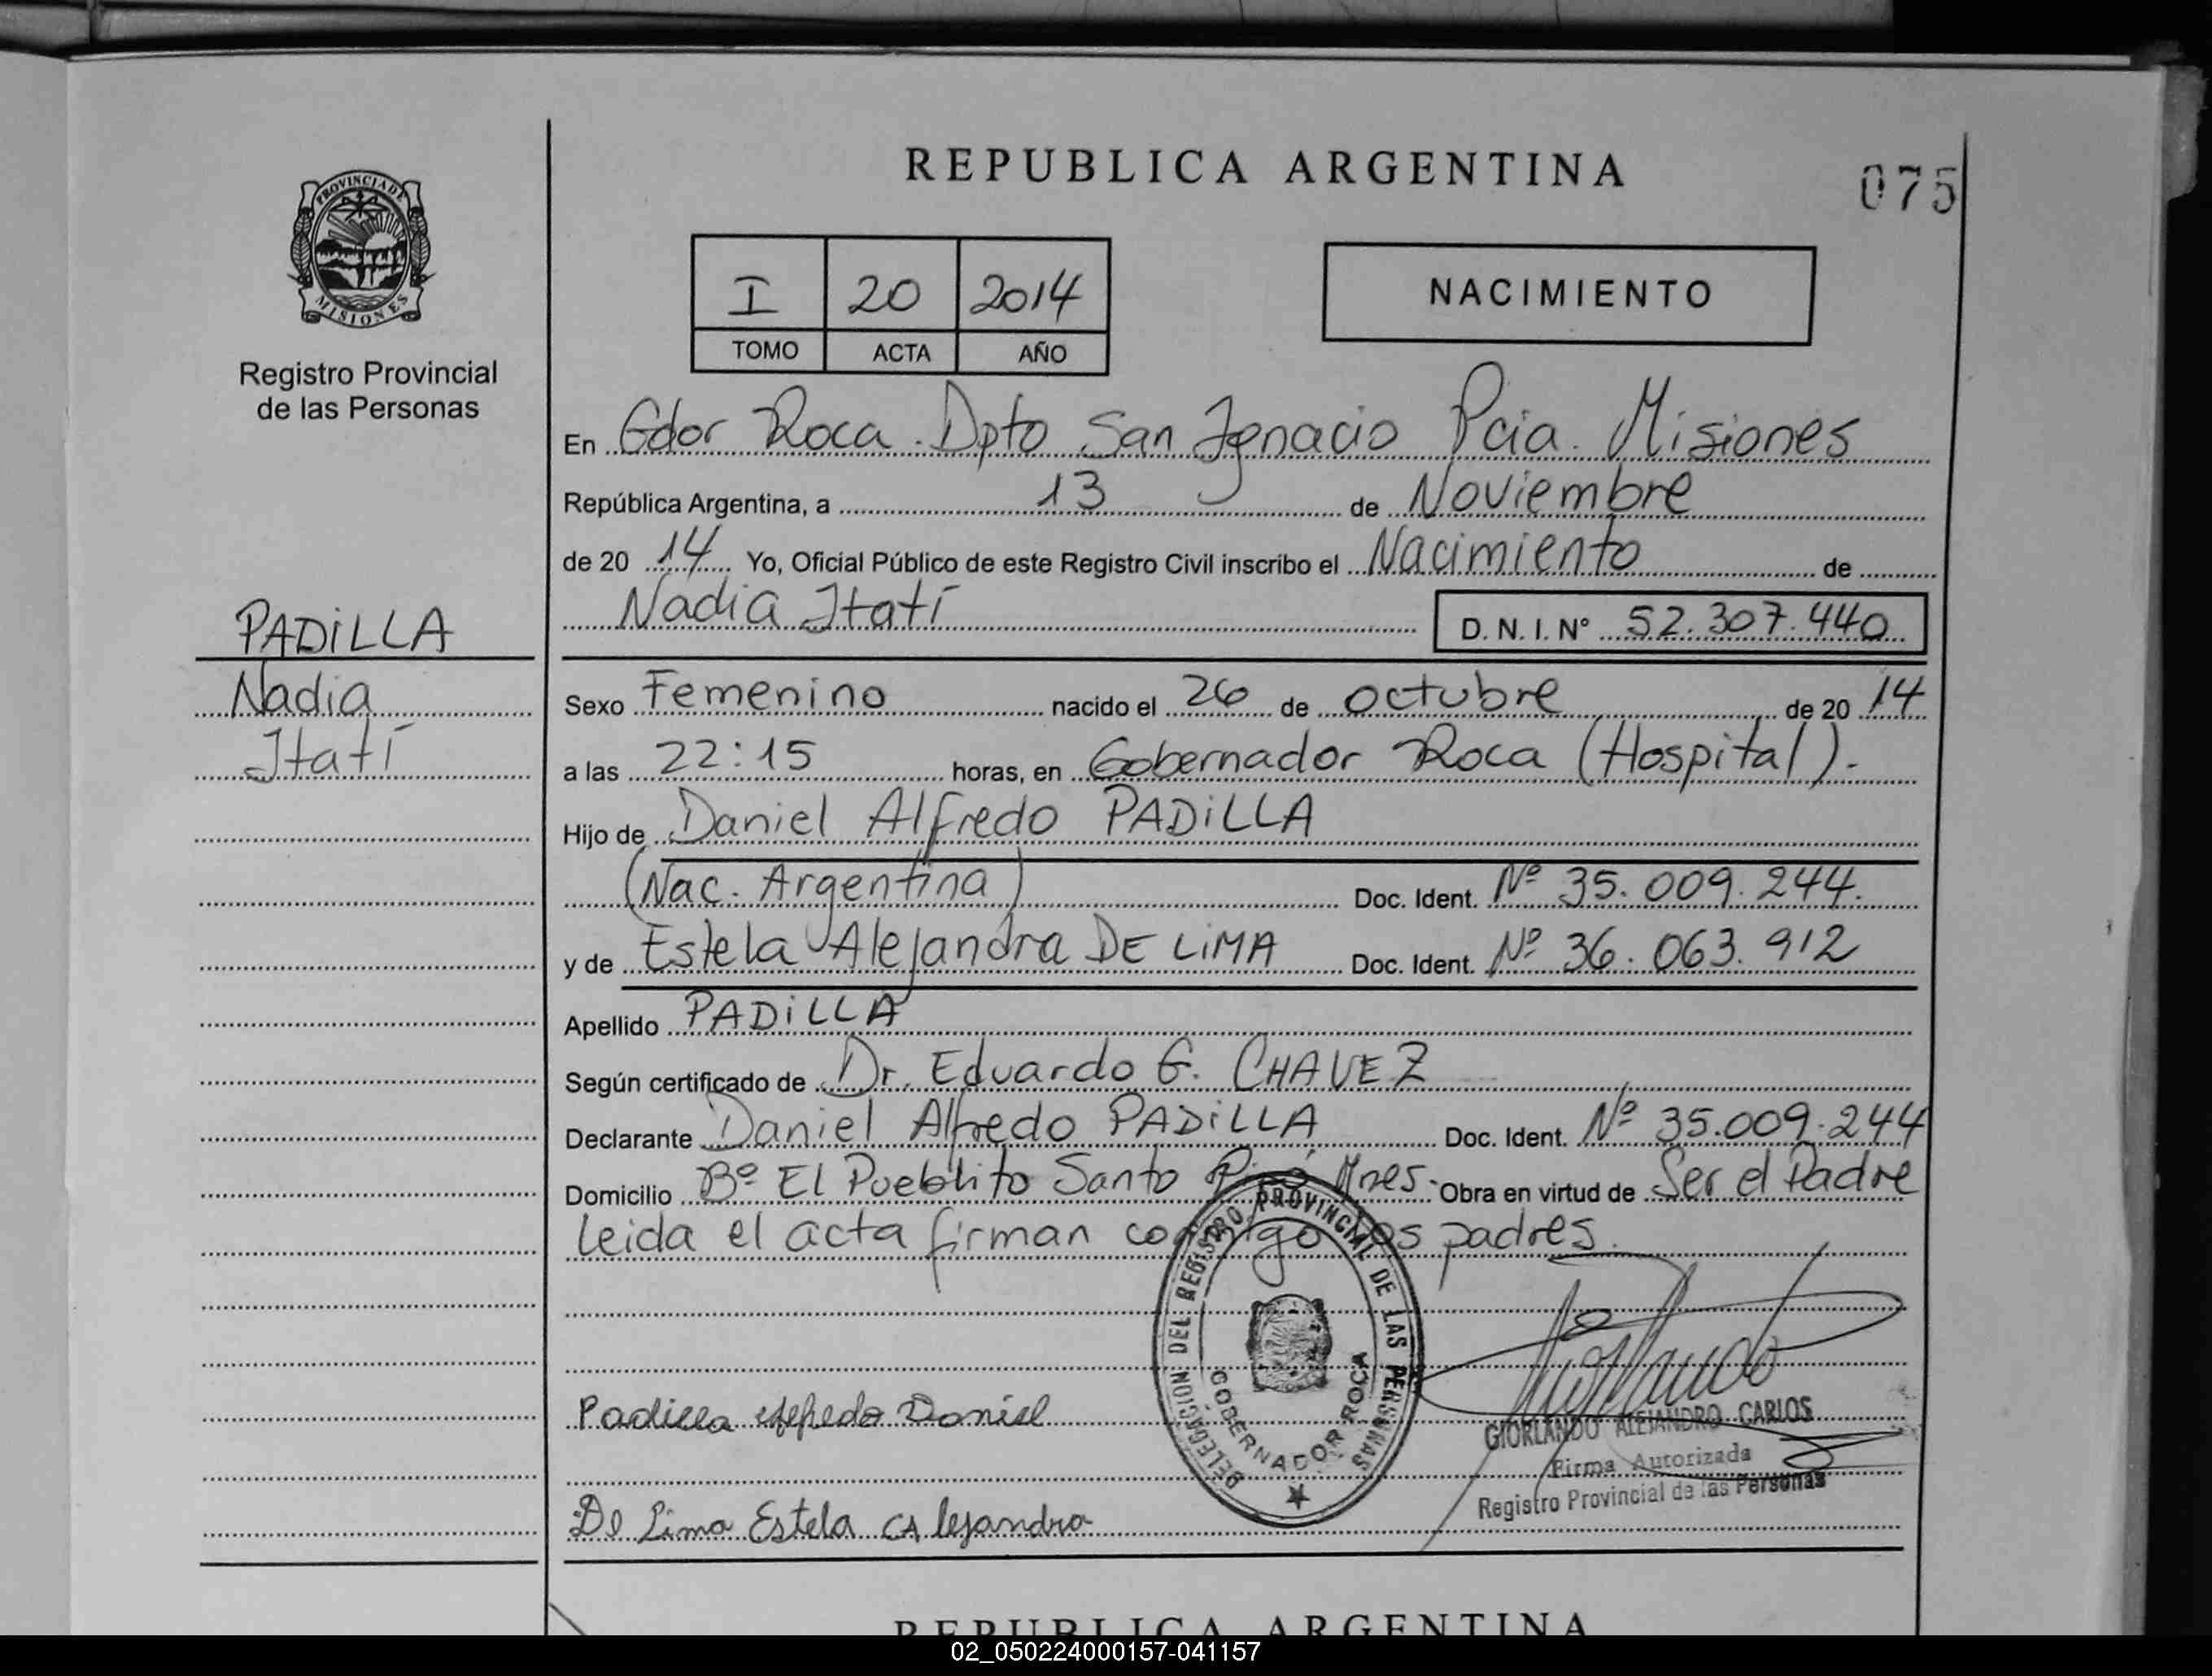 REPUBLICA ARGENTINA
075
PROVINCIA DE
MISIONES
Registro Provincial
de las Personas
I 20 2014
TOMO ACTA AÑO
NACIMIENTO
En Gdor Roca. Dpto San Ignacio Pcia. Misiones
República Argentina, a 13 de Noviembre
de 20 14 Yo, Oficial Público de este Registro Civil inscribo el Nacimiento de
Nadia Itatí D. N. I. Nº 52.307.440
PADiLLA
Nadia
Itatí
Sexo Femenino nacido el 26 de octubre de 20 14
a las 22:15 horas, en Gobernador Roca (Hospital).-
Hijo de Daniel Alfredo PADiLLA
(Nac. Argentina) Doc. Ident. Nº 35.009.244.
y de Estela Alejandra DE LiMA Doc. Ident. Nº 36.063.912
Apellido PADiLLA
Según certificado de Dr. Eduardo G. CHAVEZ
Declarante Daniel Alfredo PADiLLA Doc. Ident. Nº 35.009.244
Domicilio Bº El Pueblito Santo Pipó Mnes. Obra en virtud de Ser el Padre
Leida el acta firman conmigo los padres.
DELEGACION DEL REGISTRO PROVINCIAL DE LAS PERSONAS
GOBERNADOR ROCA
Padilla Alfredo Daniel
GIORLANDO ALEJANDRO CARLOS
Firma Autorizada
Registro Provincial de las Personas
De Lima Estela Alejandra
REPUBLICA ARGENTINA
02_050224000157-041157